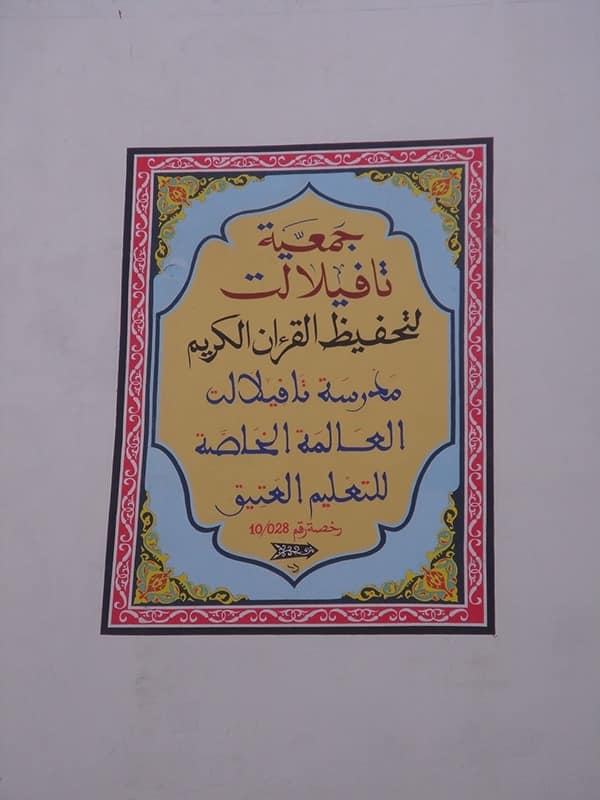 جَمعيَّة
تافيلالت
لتحفيظ القرءان الكريم
مَدرسَة تَافيلالت
العَالمَة الخَاصَّة
للتعليم العَتِيق
رخصة رقم 10/028